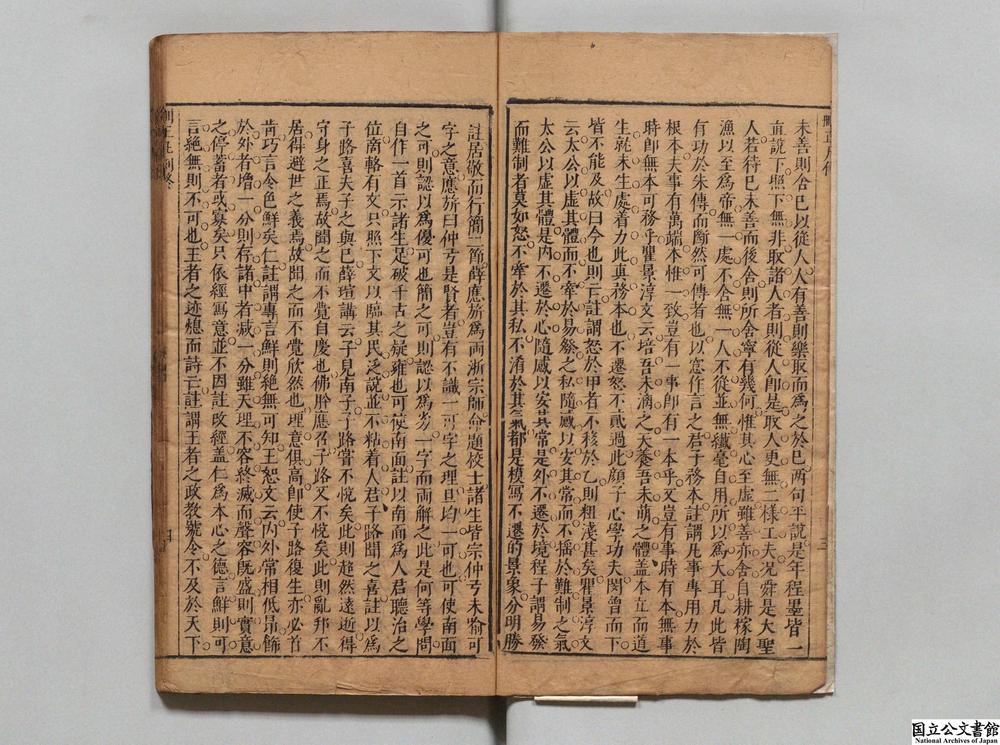 未善則舍已以從人人有善則樂取而爲之於已兩句平說是年程墨皆一
直說下照下無非取諸人者則從人卽是取人更無二樣工夫况舜是大聖
人若待已未善而後舍則所舍寧有幾何惟其心至虛雖善亦舍自耕稼陶
漁以至爲帝無一處不舍無一人不從並無纖毫自用所以爲大耳凡此皆
有功於朱傳而斷然可傳者也以意作言之君子務本註謂凡事專用力於
根本夫事有萬端本惟一致豈有一事卽有一本乎又豈有事時有本無事
時卽無本可務乎瞿景淳文云培吾未漓之天養吾未萌之體蓋本立而道
生就未生處着力此真務本也不遷怒不貳過此顏子心學功夫閔曾而下
皆不能及故曰今也則亡註謂怒於甲者不移於乙則粗淺甚矣瞿景淳文
云太公以虛其體而不牽於易發之私隨感以安其常而不搖於難制之氣
太公以虛其體是内不遷於心隨感以安其常是外不遷於境程子謂易發
而難制者莫如怒不牽於其私不淆於其氣都是模寫不遷的景象分明勝
註居敬而行簡二節薛應旂爲兩浙宗師命題校士諸生皆宗仲弓未喻可
字之意應旂曰仲弓是賢者豈有不識一可字之理且均一可也可使南面
之可則認以爲優可也簡之可則認以爲劣一字而兩解之此是何等學問
自作一首示諸生足破千古之疑雍也可使南面註以南面爲人君聽治之
位商輅有文只照下文以臨其民泛說並不粘着人君子路聞之喜註以爲
子路喜夫子之與已薛瑄講云子見南子子路嘗不悅矣此則超然遠逝得
守身之正焉故聞之而不覺自慶也佛肸應召子路又不悅矣此則亂邦不
居得避世之義焉故聞之而不覺欣然也理意俱高卽使子路復生亦必首
肯巧言令色鮮矣仁註謂專言鮮則絶無可知王恕文云内外常相低昂飾
於外者增一分則存諸中者减一分雖天理不容終滅而聲容旣盛則實意
之停蓄者或寡矣只依經寫意並不因註改經蓋仁爲本心之德言鮮則可
言絶無則不可也王者之迹熄而詩亡註謂王者之政教號令不及於天下
国立公文書館
National Archives of Japan